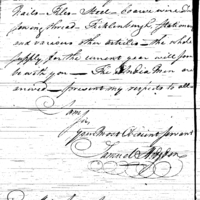 Nails - Files - Steel - coarse wire &
sewing thread - Ticklenburgh, stationary
and various other articles - the whole
supply for the current year will soon
be with you - The Indian men are
arrived - present my respects to all
I am,
Sir,
your Most Obedient Servant
Samuel Hodgdon